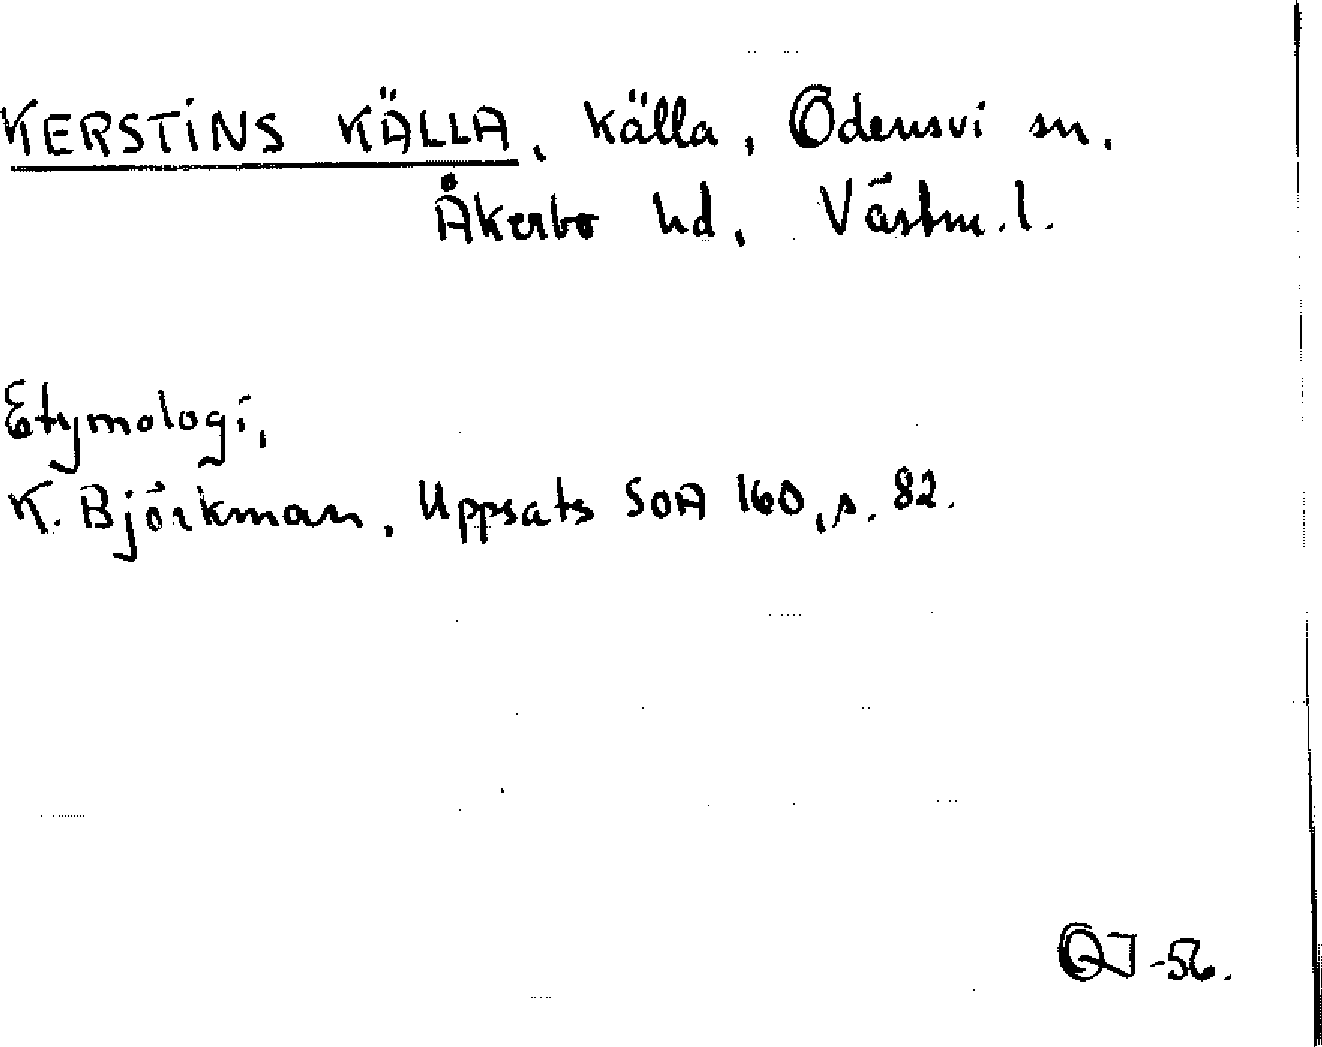 KERSTINS KÄLLA, källa, Odensvi sn.
Åkerbo hd, Västm. l.
Etymologi,
K. Björkman, Uppsats SOA 160, s. 82.
OJ -56.